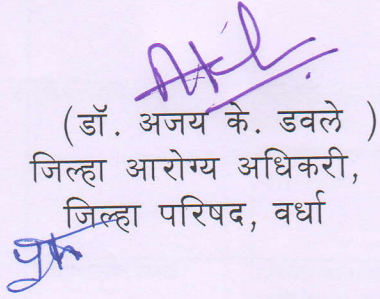 (डॉ. अजय के. डवले )
जिल्हा आरोग्य अधिकरी,
जिल्हा परिषद, वर्धा